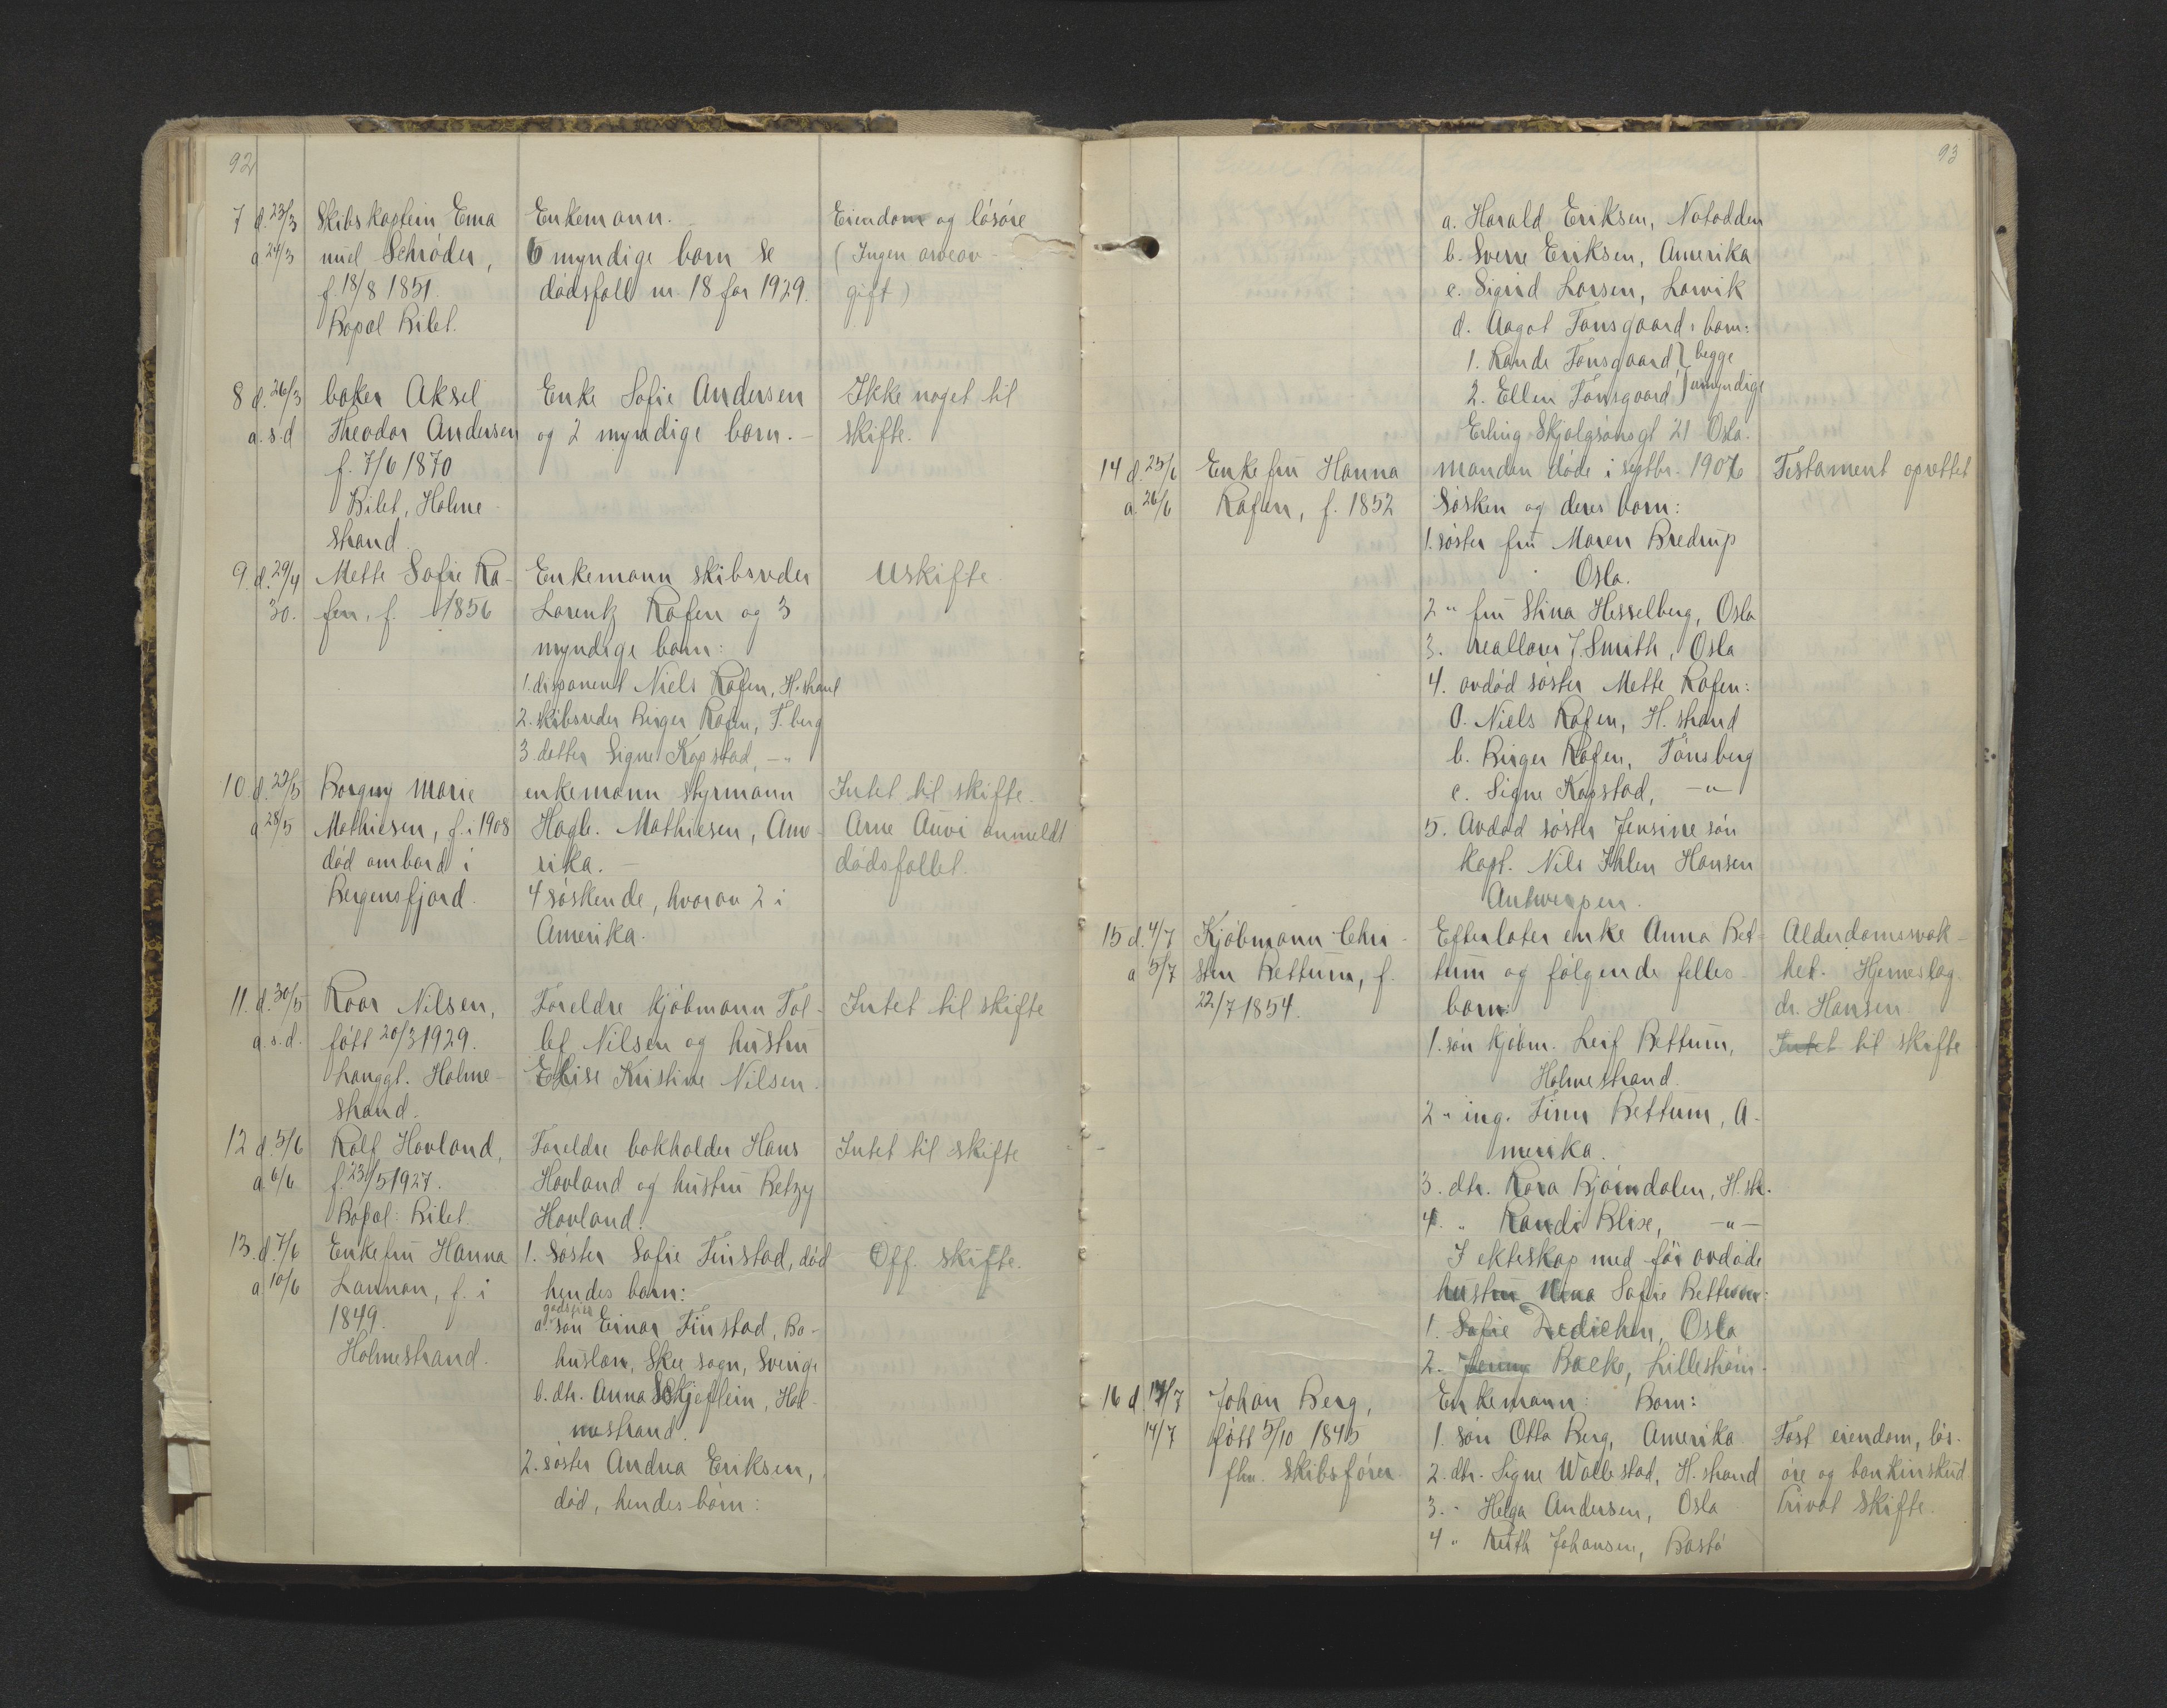 92
7 d. 23/3 Skibskaptein Ema Enkemann. Eiendom og løsøre
a 24/3 nuel Schrøder, 6 myndige barn se (Ingen arveav-
f. 18/8 1851. dødsfall nr. 18 for 1929. gift)
Bopæl Bilet.
8 d. 26/3 baker Aksel Enke Sofie Andersen Ikke noget til
a. s. d Theodor Andersen og 2 myndige barn.- skifte.
f. 7/6 1870
Bilet, Holme
strand
9. d. 29/4 Mette Sofie Ra- Enkemann skibsreder Uskifte.
30. fen, f. 1856 Lorentz Rafen og 3
myndige barn:
1. disponent Niels Rafen, H.strand
2. skibsreder Birger Rafen, T.berg
3. datter Signe Kopstad, -"-
10. d. 22/5 Borgny Marie enkemann styrmann Intet til skifte.
a 28/5 Mathiesen, f. i 1908 Hagb. Mathiesen, Ame- Arne Auvi anmeldt
død ombord i rika.- dødsfallet.
Bergensfjord. 4 søskende, hvorav 2 i
Amerika.
11. d. 30/5 Roar Nilsen, Foreldre kjøbmann Tol- Intet til skifte
a. s. d. født 20/3 1929. lef Nilsen og hustru
Langgt. Holme- Elise Kristine Nilsen.
strand.
12 d. 5/6 Rolf Hovland, Foreldre bokholder Hans Intet til skifte
a 6/6 f 23/5 1927. Hovland og hustru Betzy
Bopæl: Bilet. Hovland.
13. d. 7/6 Enkefru Hanna 1. Søster Sofie Finstad, død Off. skifte.
a 10/6 Lannan, f. i hendes barn:
1849. a. godseier søn Einar Finstad, Bo-
Holmestrand. huslæn, Skee sogn, Sverige
b. dtr. Anna Skjeflein, Hol-
mestrand.
2. søster Andrea Eriksen,
død, hendes børn:
93
a. Harald Eriksen, Notodden
b. Sverre Eriksen, Amerika
c. Sigrid Larsen, Larvik
d. Aagot Tonsgaards barn:
1. Rande Tonsgaard } begge
2. Ellen Tonsgaard } umyndige
Erling Skjalgsønsgt 21 Oslo.
14 d. 25/6 Enkefru Hanna manden døde i septbr. 1907 Testament oprettet
a. 26/6 Rafen, f. 1852 Søsken og deres barn:
1. søster fru Maren Bredrup
Oslo.
2 " fru Stina Hesselberg, Oslo
3. reallærer J. Smith, Oslo
4. avdød søster Mette Rafen:
a. Niels Rafen, H. strand
b. Birger Rafen, Tønsberg
c. Signe Kopstad, -"-
5. Avdød søster Jensine søn
kapt. Nils Ihlen Hansen
Antwerpen.
15 d. 4/7 Kjøbmann Chri- Efterlater enke Anna Bet- Alderdomssvak-
a 5/7 sten Bettum, f. tum og følgende felles- het. Hjerneslag
22/7 1854. barn: dr. Hansen
1. søn kjøbm. Leif Bettum, Intet til skifte
Holmestrand.
2 " ing. Finn Bettum, A-
merika.
3. dtr. Kara Bjørndalen, H.str.
4. " Randi Blixe, -"-
I ekteskap med før avdøde
hustru Sofie Bettum:
1. Sofie Dedichen, Oslo
2. Backe, Lillestrøm.
16 d 12/7 Johan Berg, Enkemann: Barn:
14/7 født 5/10 1845 1. søn Otto Berg, Amerika Fast eiendom, løs-
fhv. skibsfører. 2. dtr. Signe Wallestad, H. strand øre og bankinskud
3. " Helga Andersen, Oslo Privat skifte.
4 " Ruth Johansen, Bastø